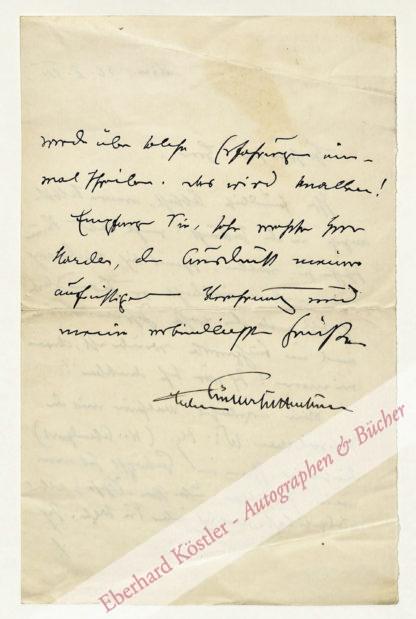 werde über solche Erfahrungen ein-
mal schreiben. Das wird knallen!
Empfangen Sie, sehr verehrter Herr
Harden, den Ausdruck meiner
aufrichtigen Verehrung und
meine verbindlichsten Grüße
Eberhard Köstler - Autographen & Bücher